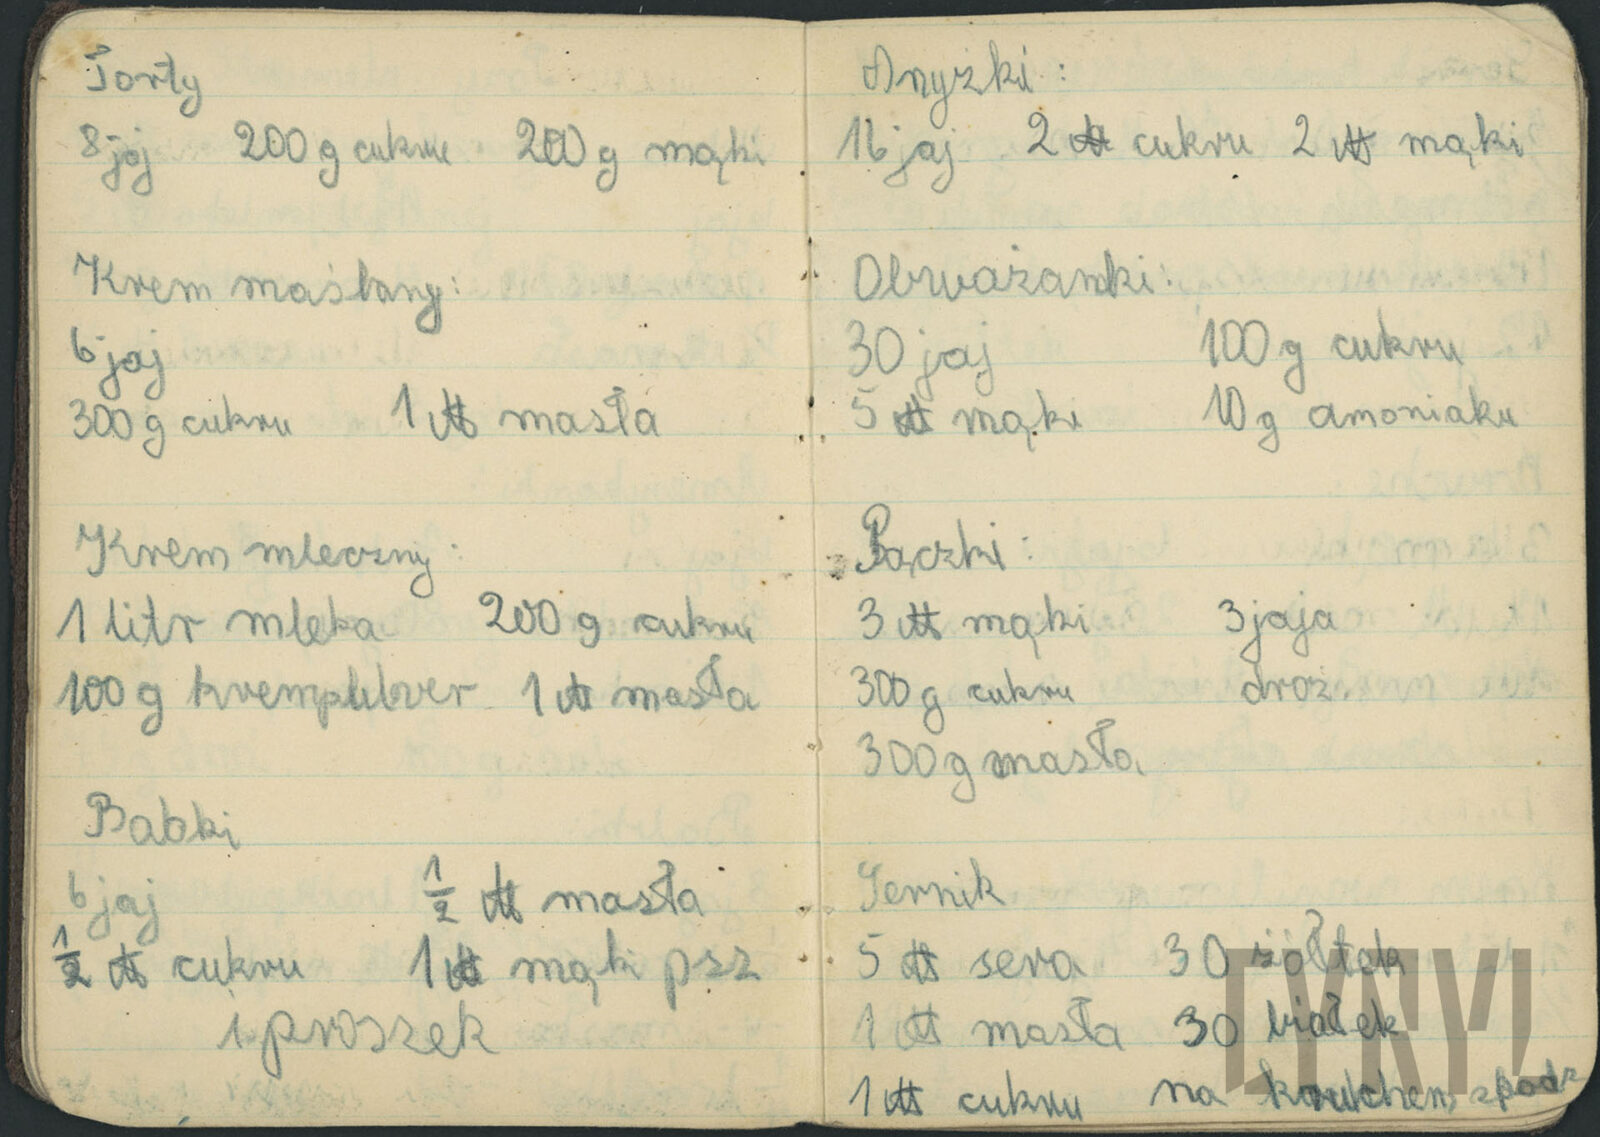 Torty
8 jaj 200 g cukru 200 g mąki
Krem maślany:
6 jaj
300 g cukru 1 ℔ masła
Krem mleczny:
1 litr mleka 200 g cukru
100 g krempulwer 1 ℔ masła
Babki
6 jaj ½ ℔ masła
½ ℔ cukru 1 ℔ mąki psz
1 proszek
Anyżki:
16 jaj 2 ℔ cukru 2 ℔ mąki
Obważanki:
30 jaj 100 g cukru
5 ℔ mąki 10 g amoniaku
Pączki:
3 ℔ mąki 3 jaja
300 g cukru droż.
300 g masła
Sernik
5 ℔ sera 30 żółtek
1 ℔ masła 30 białek
1 ℔ cukru na kruchem spodz
CYRYL